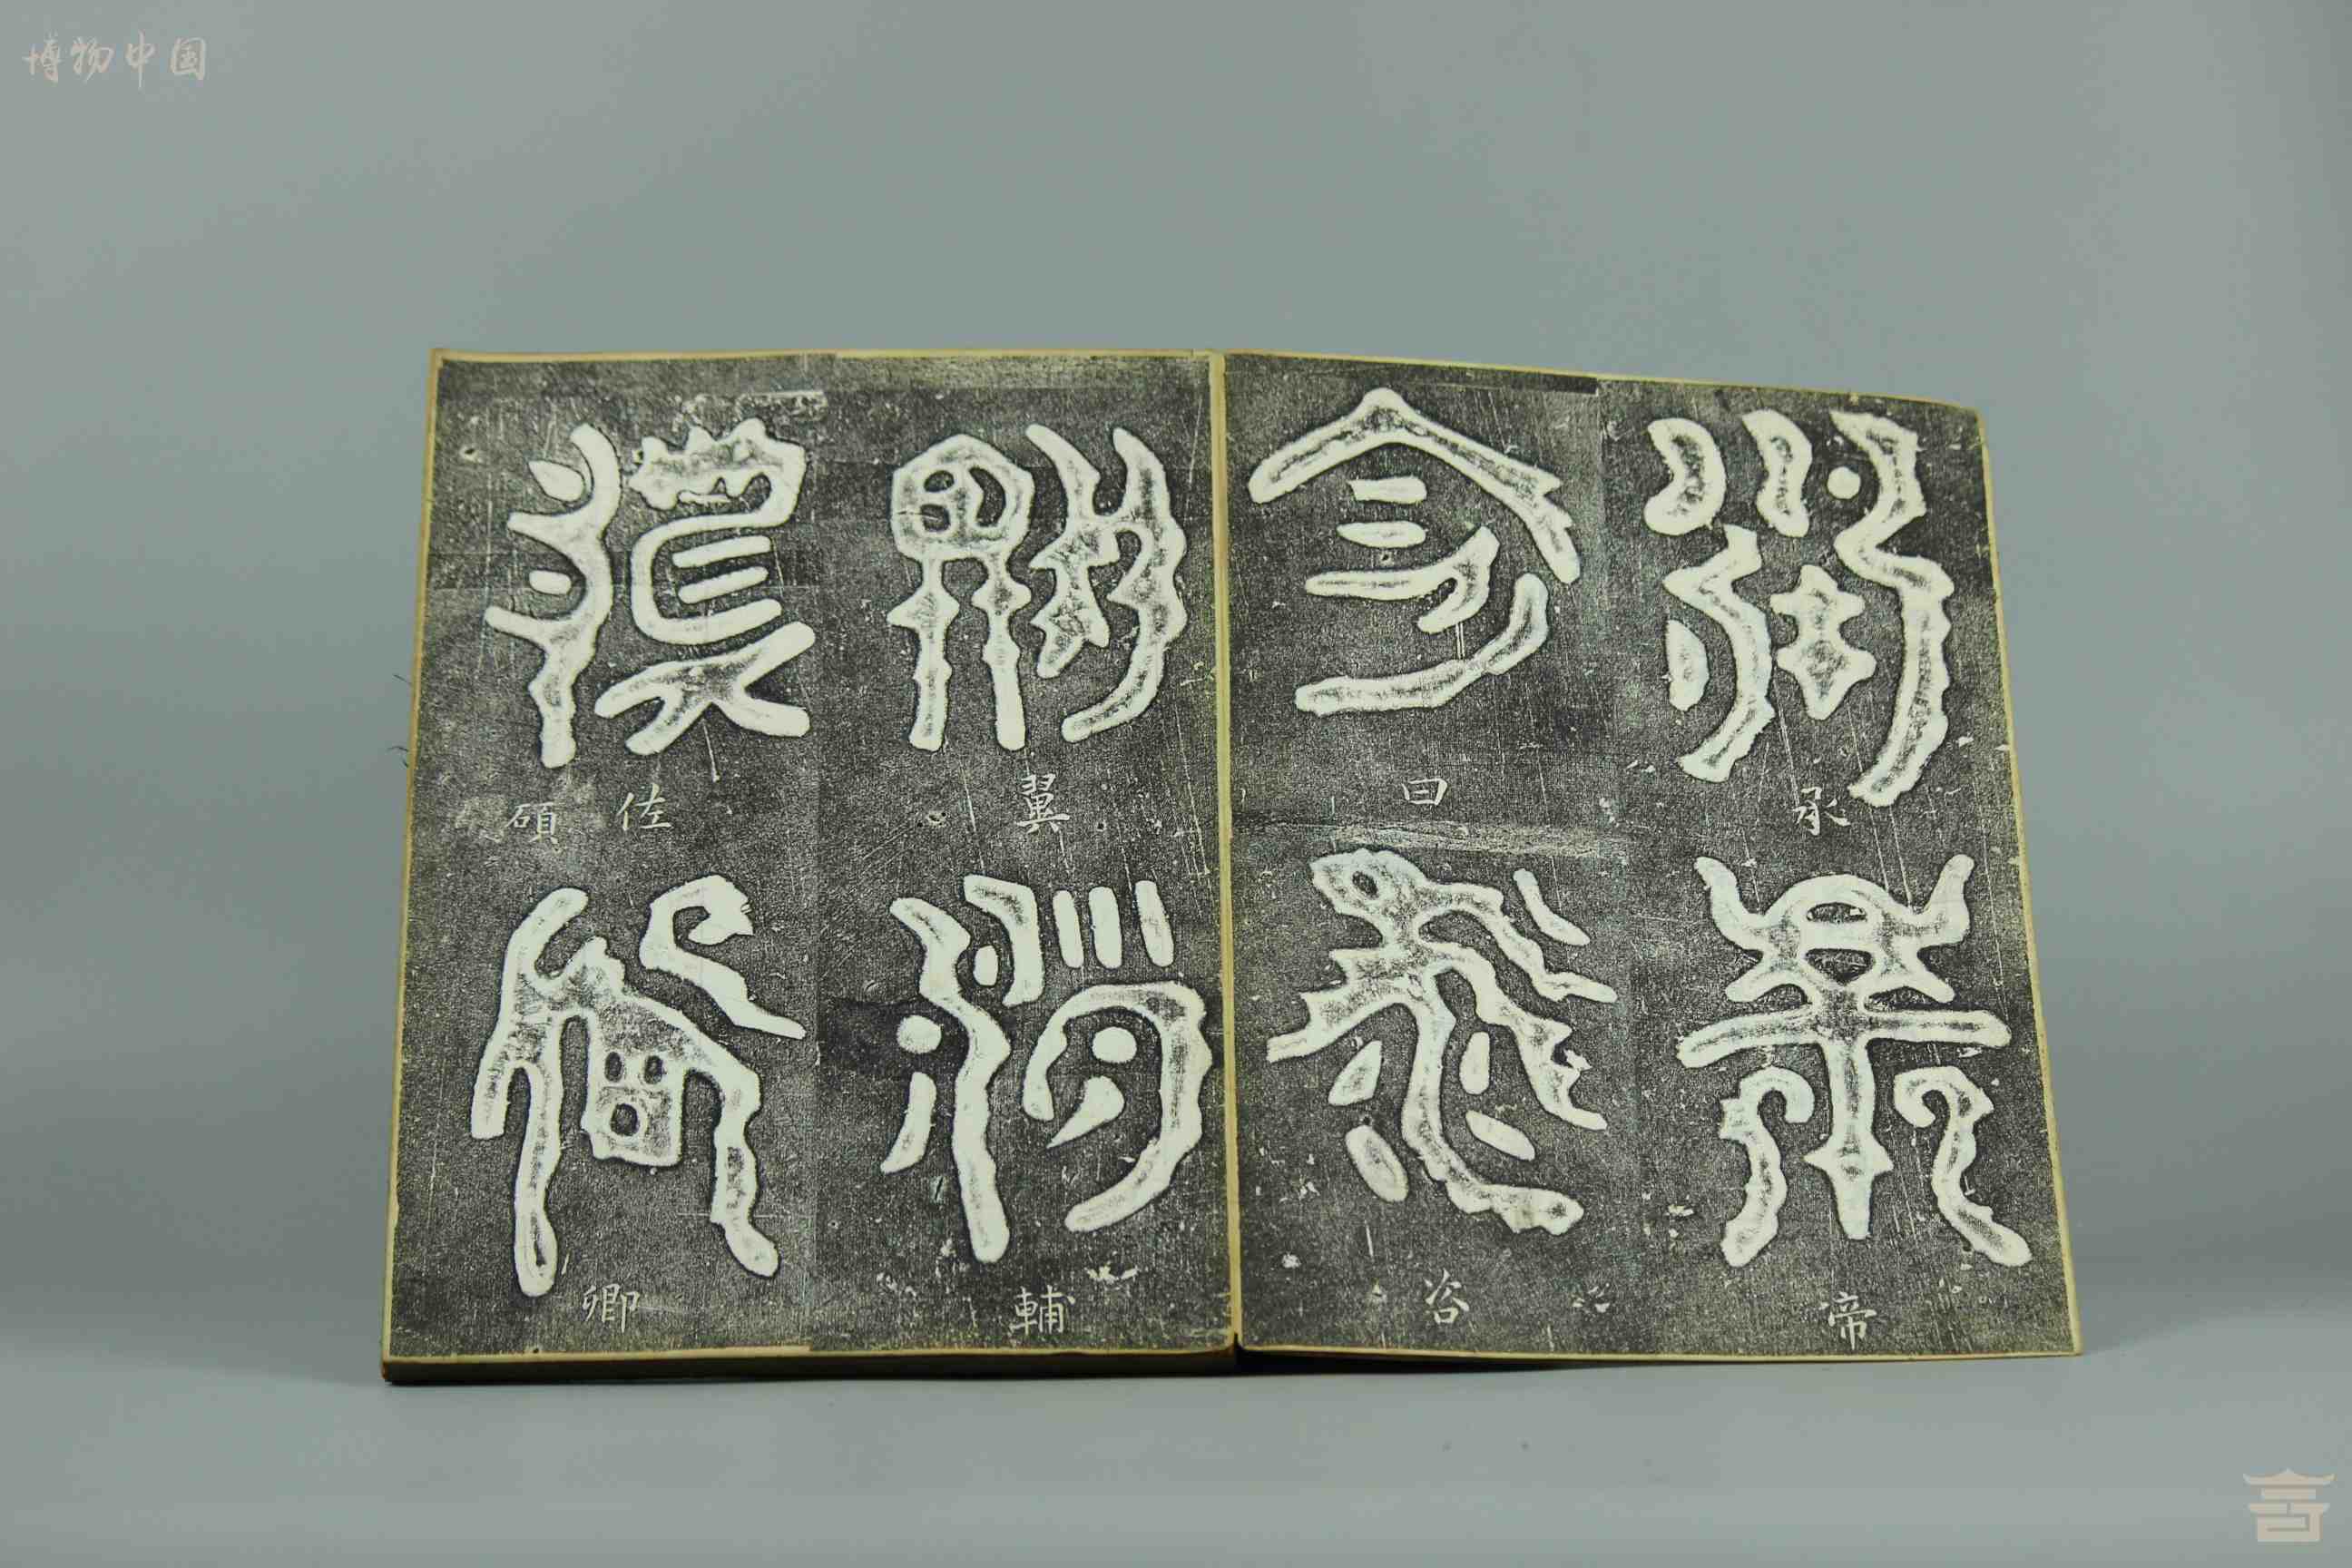 博物中国
承
帝
曰
咨
翼
輔
佐碩
卿